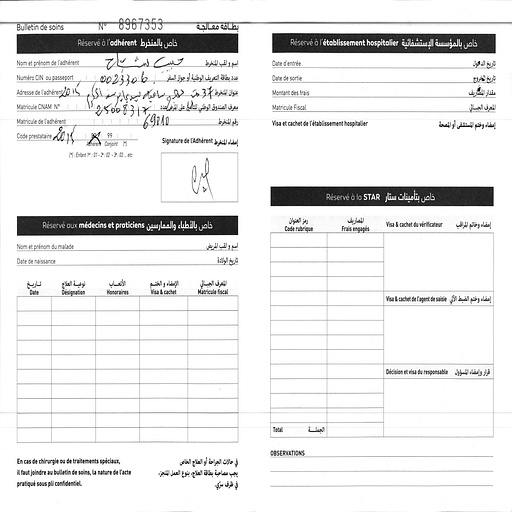 Bulletin de soins N° 8967353 بطاقة معالجة
Réservé à l'adhérent خاص بالمنخرط
Nom et prénom de l'adhérent اسم و لقب المنخرط
Numéro CIN ou passeport 0023306 عدد بطاقة التعريف الوطنية أو جواز السفر
Adresse de l'adhérent عنوان المنخرط
Matricule CNAM N°
Matricule de l'adhérent 69810 رقم المنخرط
Code prestataire 99
Adhérent Conjoint (*)
(*) : Enfant 1er : 01 - 2ème : 02 - 3ème : 03 ... etc
Signature de l'Adhérent إمضاء المنخرط
Réservé aux médecins et praticiens خاص بالأطباء والممارسين
Nom et prénom du malade اسم و لقب المريض
Date de naissance تاريخ الولادة
تاريخ نوعية العلاج الأتعاب الإمضاء و الختم المعرف الجبائي
Date Désignation Honoraires Visa & cachet Matricule fiscal
En cas de chirurgie ou de traitements spéciaux,
il faut joindre au bulletin de soins, la nature de l'acte
pratiqué sous pli confidentiel.
في حالات الجراحة أو العلاج الخاص
يجب مصاحبة بطاقة العلاج، بنوع العمل المنجز،
في ظرف سري.
Réservé à l'établissement hospitalier خاص بالمؤسسة الإستشفائية
Date d'entrée تاريخ الدخول
Date de sortie تاريخ الخروج
Montant des frais مقدار المصاريف
Matricule Fiscal المعرف الجبائي
Visa et cachet de l'établissement hospitalier إمضاء وختم المستشفى أو المصحة
Réservé à la STAR خاص بتأمينات ستار
رمز العنوان المصاريف
Code rubrique Frais engagés
Visa & cachet du vérificateur إمضاء وخاتم المراقب
Visa & cachet de l'agent de saisie إمضاء وختم الضبط الآلي
Décision et visa du responsable قرار وإمضاء المسؤول
Total الجملة
OBSERVATIONS